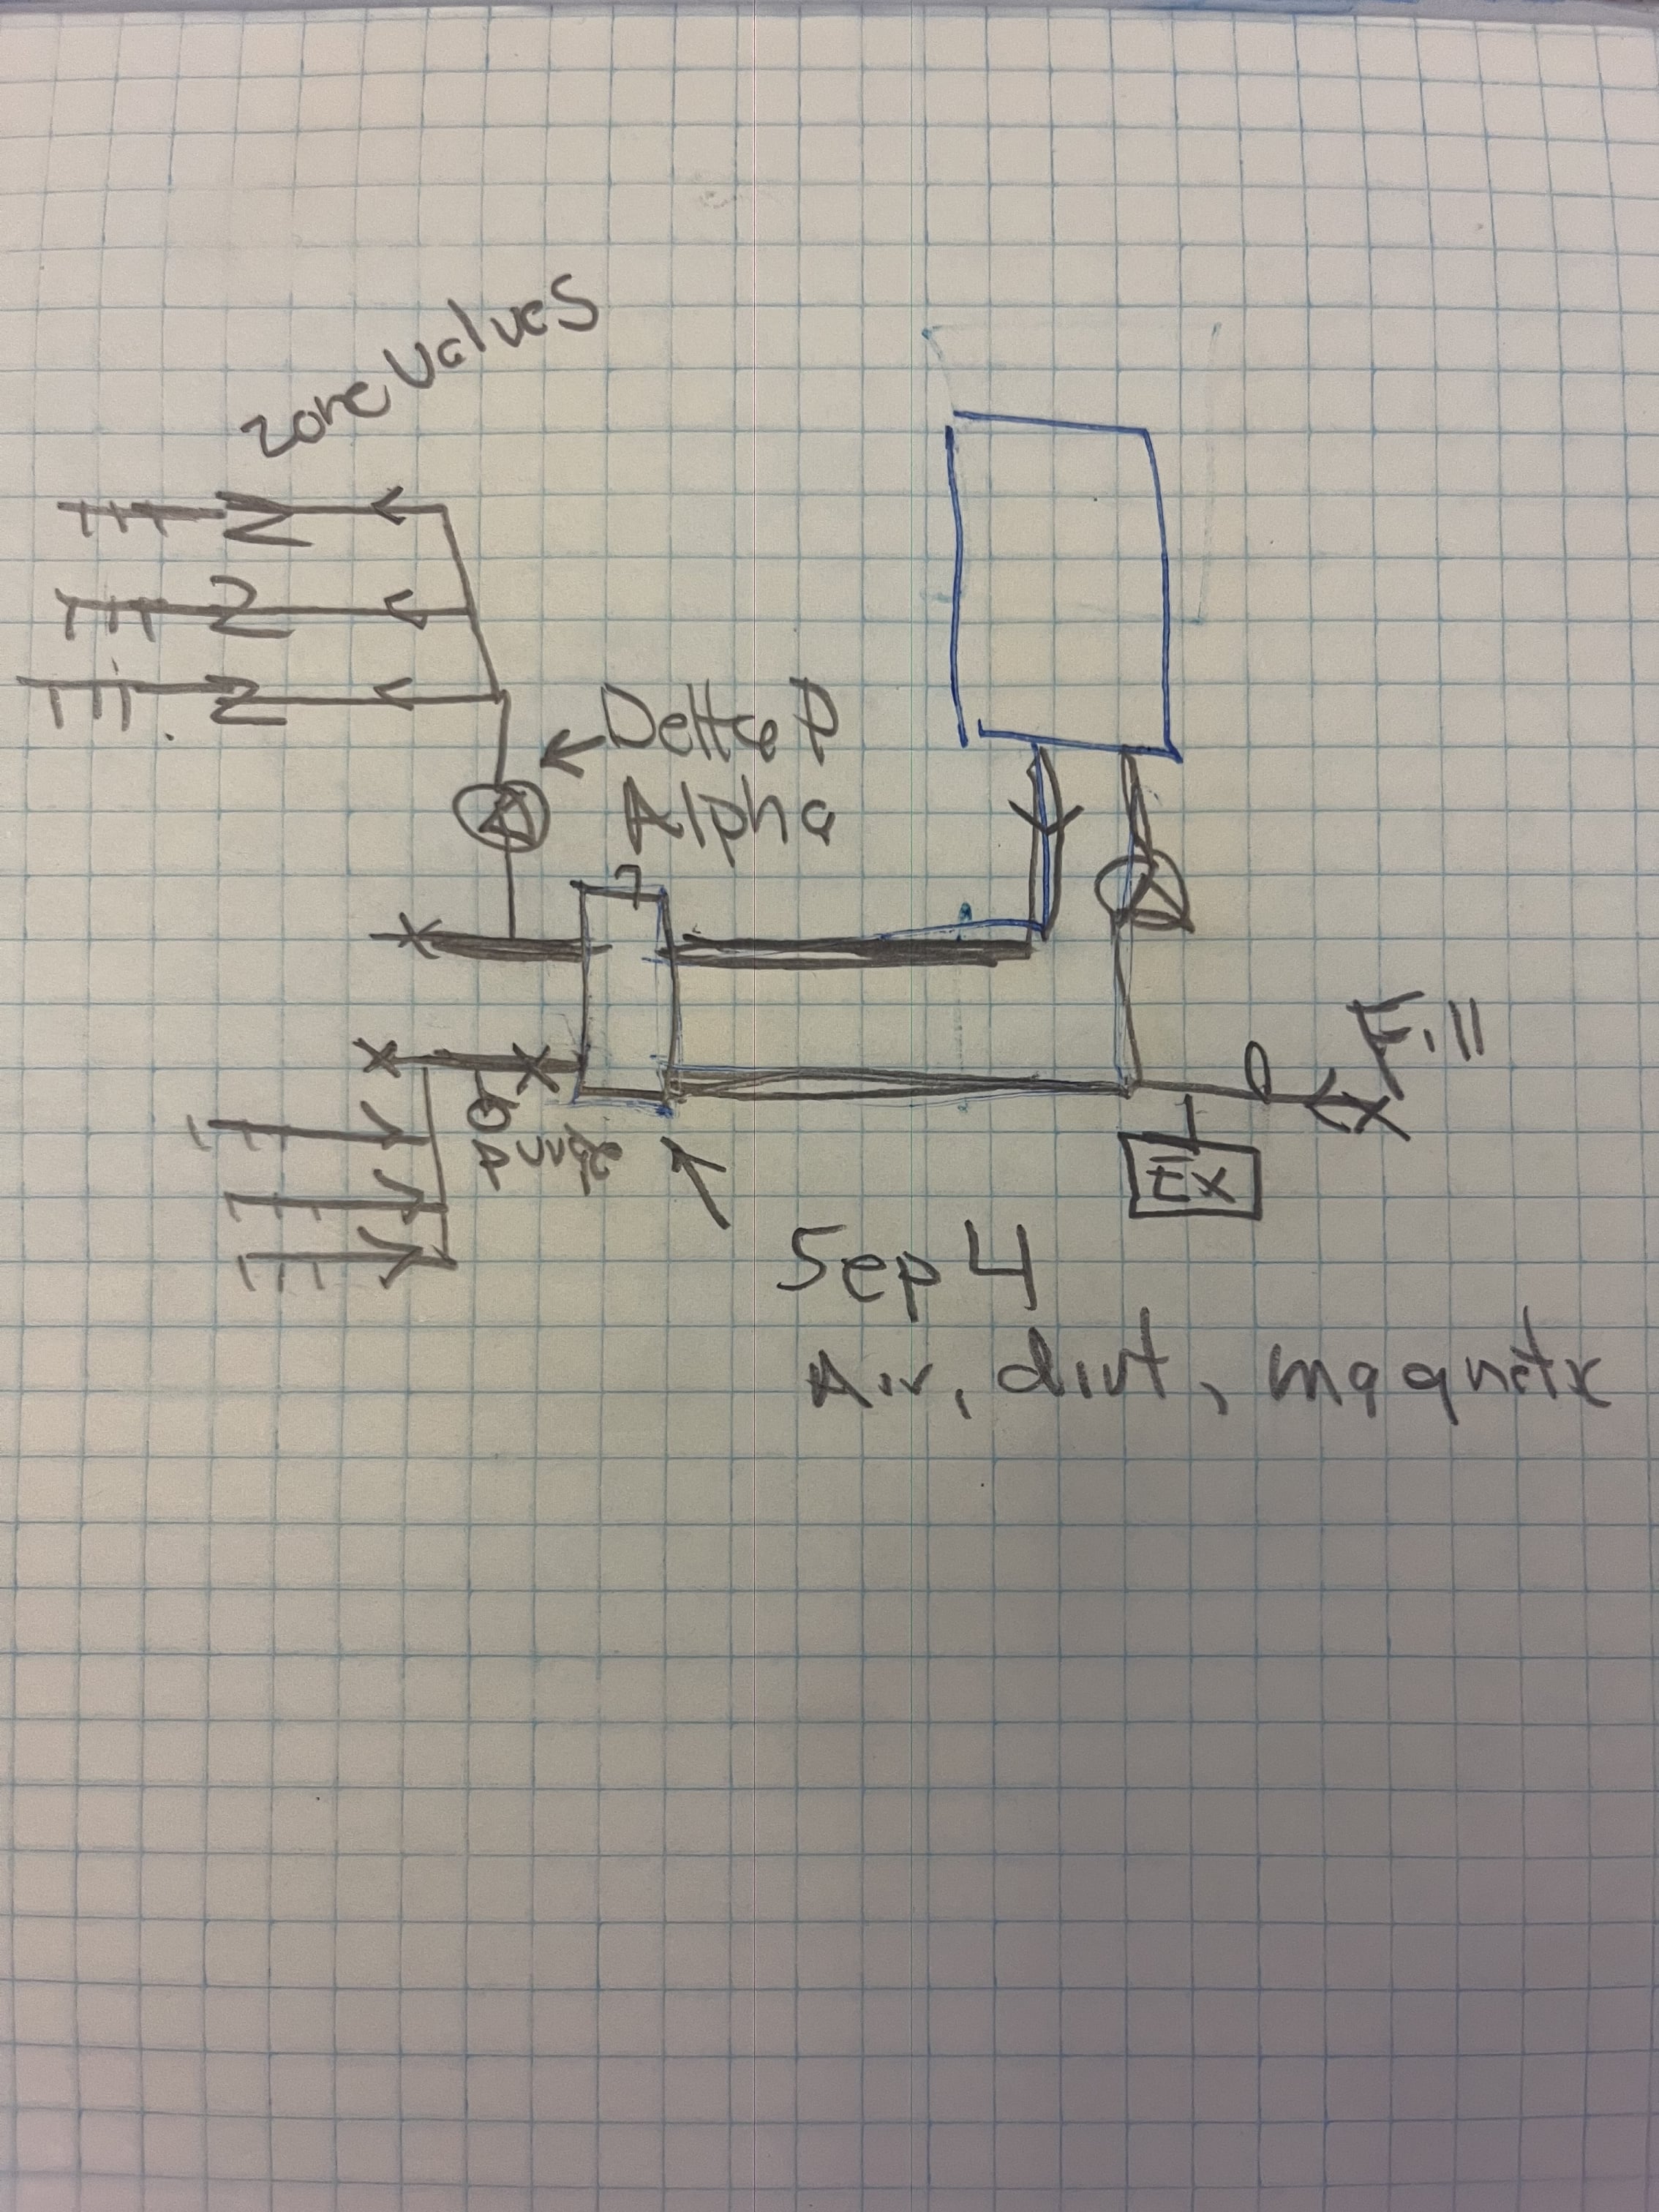 zone valves
Delta P
Alpha
Fill
purge
Ex
Sep 4
Air, dirt, magnetic